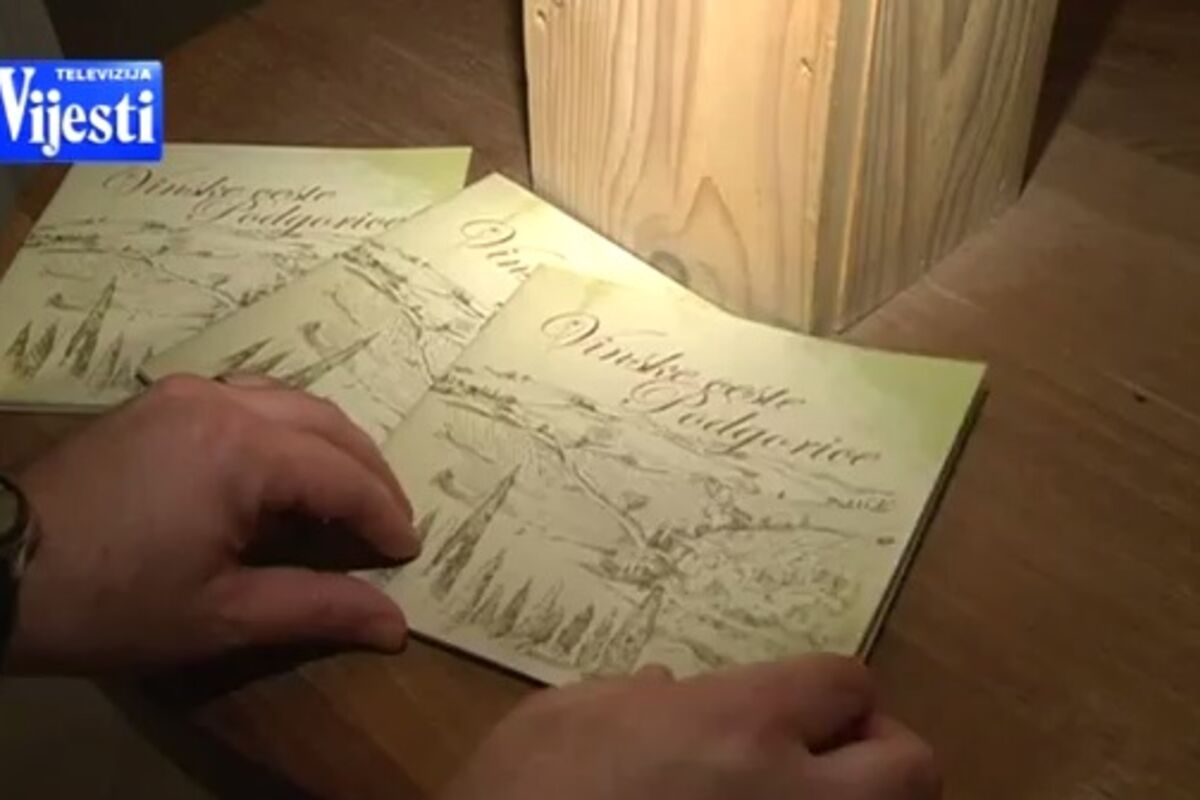 TELEVIZIJA
Vijesti
Vinske ceste
Podgorice
Vin
Vinske ceste
Podgorice